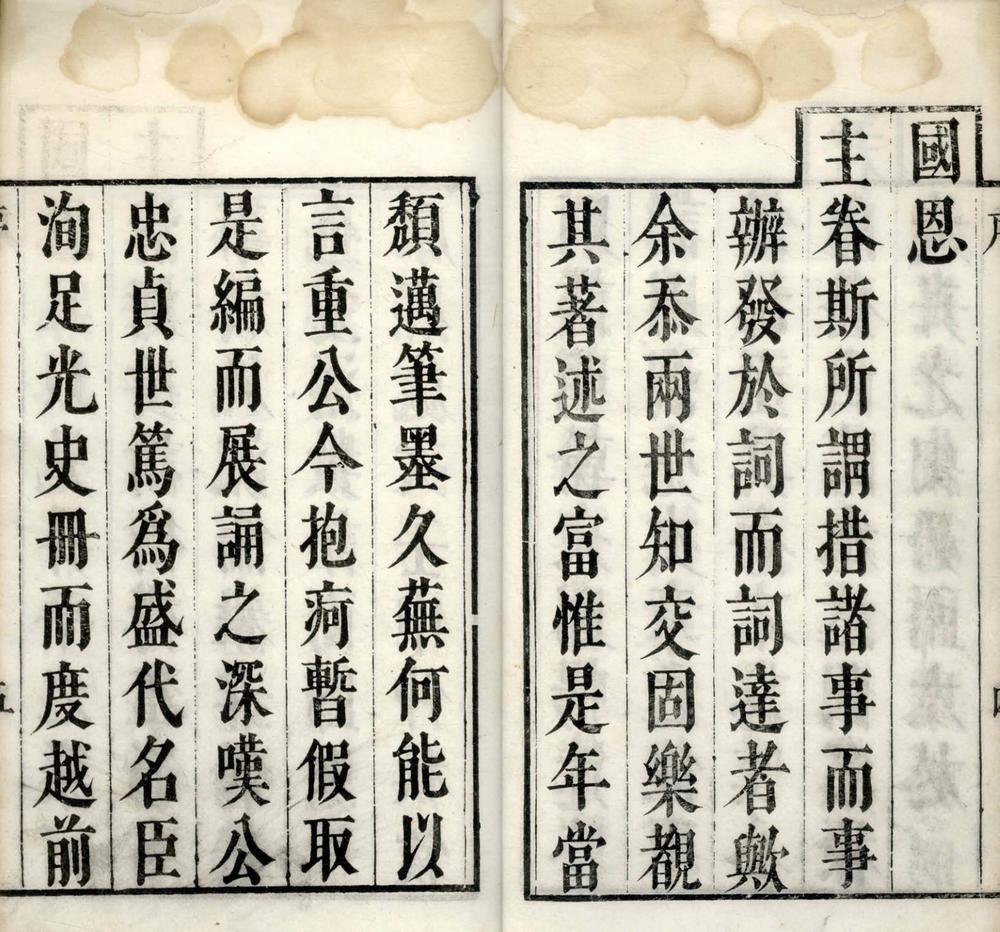 國恩
主眷斯所謂措諸事而事
辦發於詞而詞達者歟
余忝兩世知交固樂覩
其著述之富惟是年當
頽邁筆墨久蕪何能以
言重公今抱疴暫假取
是編而展誦之深嘆公
忠貞世篤爲盛代名臣
洵足光史冊而度越前